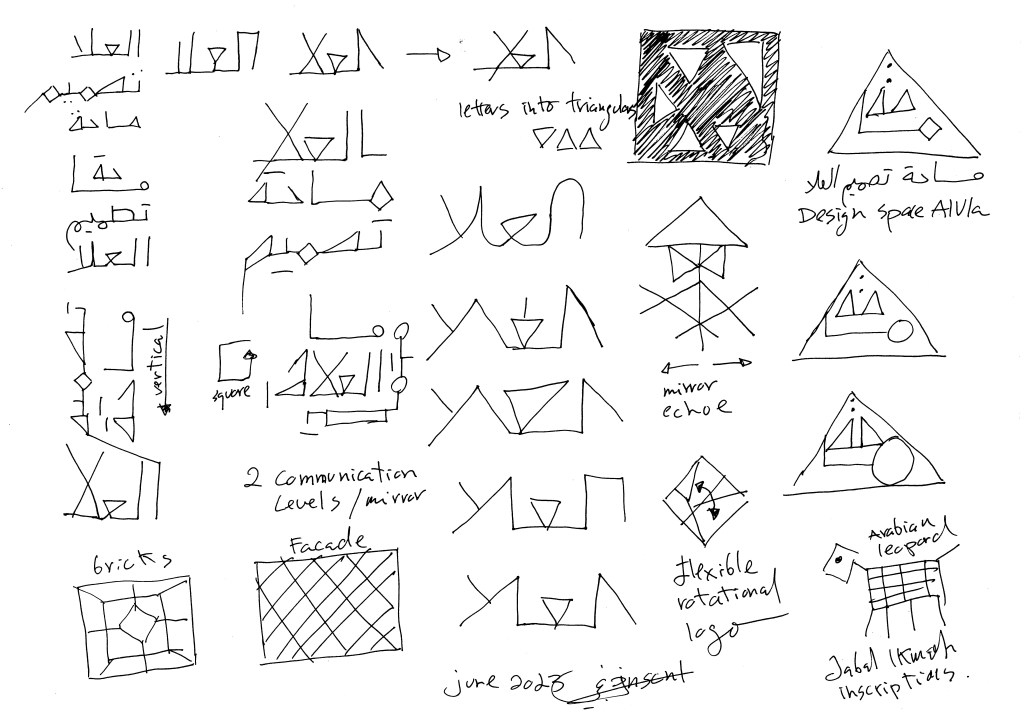 العلا
تصميم
مساحة
تصميم
العلا
letters into triangulars
مساحة تصميم العلا
Design space AlUla
vertical
square
mirror
echoe
2 Communication
Levels / mirror
bricks
Facade
flexible
rotational
logo
Arabian
leopard
Jabal IKmah
inscriptions.
june 2023